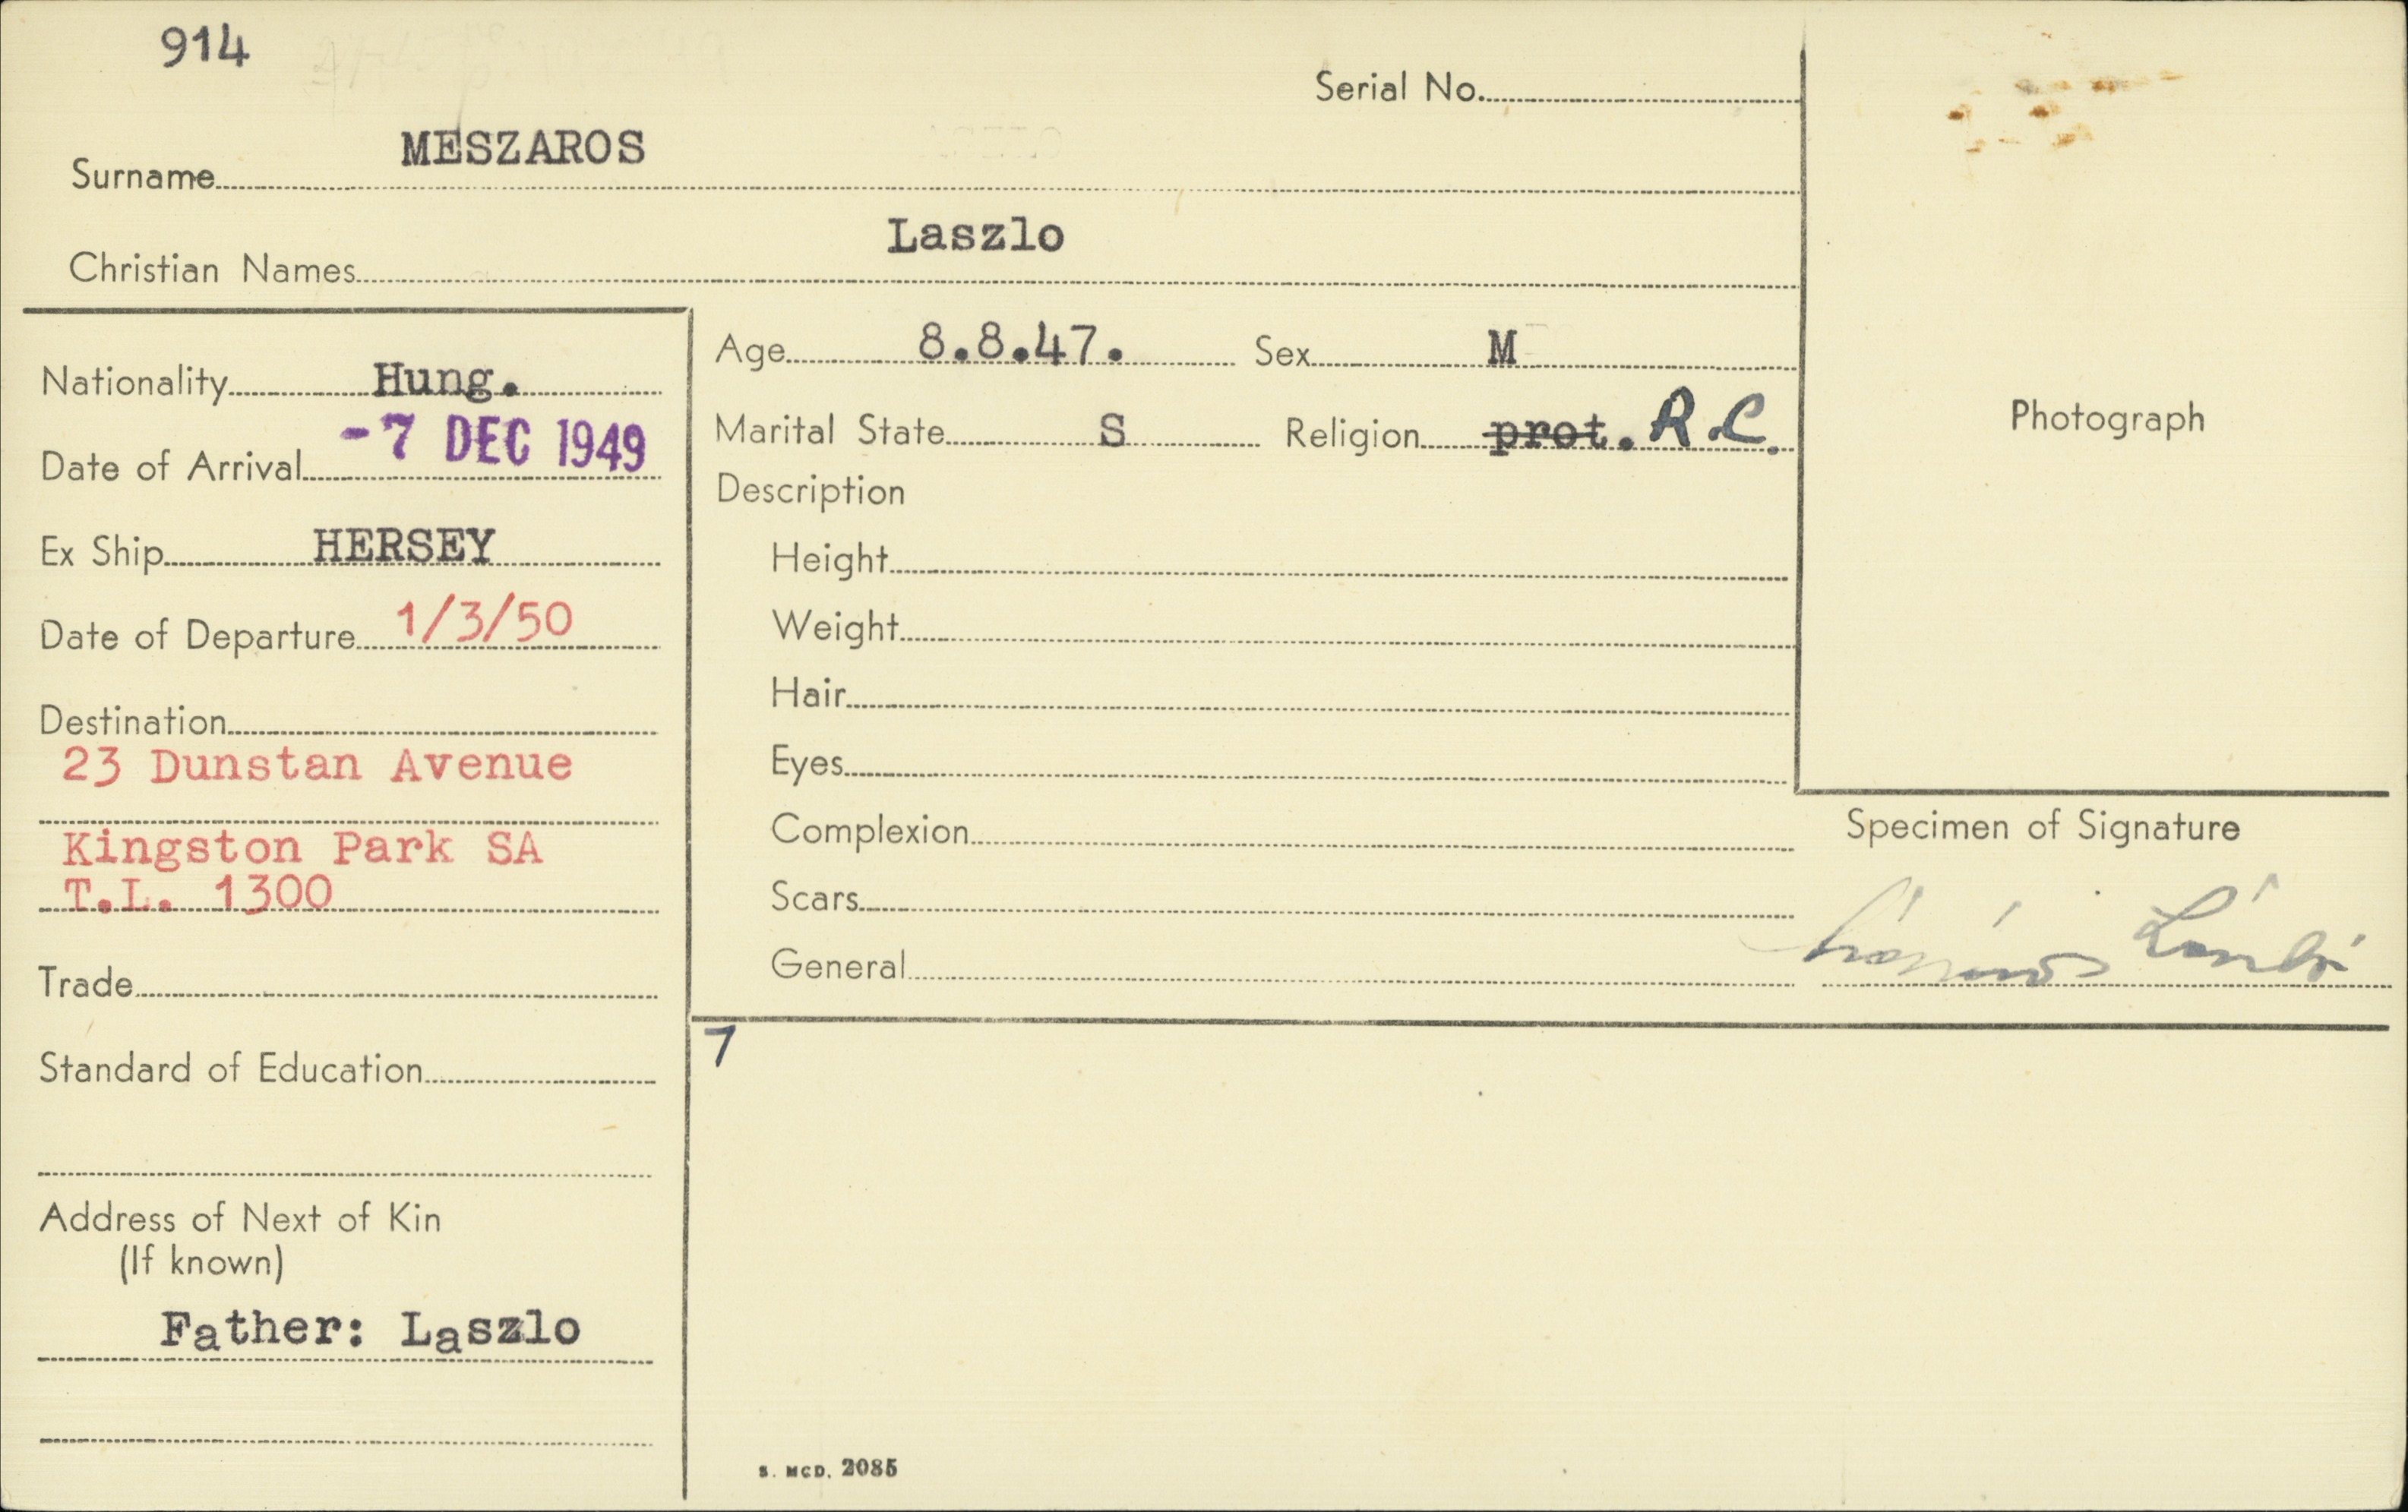 914
Serial No.
Surname MESZAROS
Christian Names Laszlo
Nationality Hung.
Date of Arrival -7 DEC 1949
Ex Ship HERSEY
Date of Departure 1/3/50
Destination
23 Dunstan Avenue
Kingston Park SA
T.L. 1300
Trade
Standard of Education
Address of Next of Kin
(If known)
Father: Laszlo
Age 8.8.47. Sex M
Marital State S Religion prot. R.C.
Description
Height
Weight
Hair
Eyes
Complexion
Scars
General
7
S. MCD. 2085
Photograph
Specimen of Signature
László